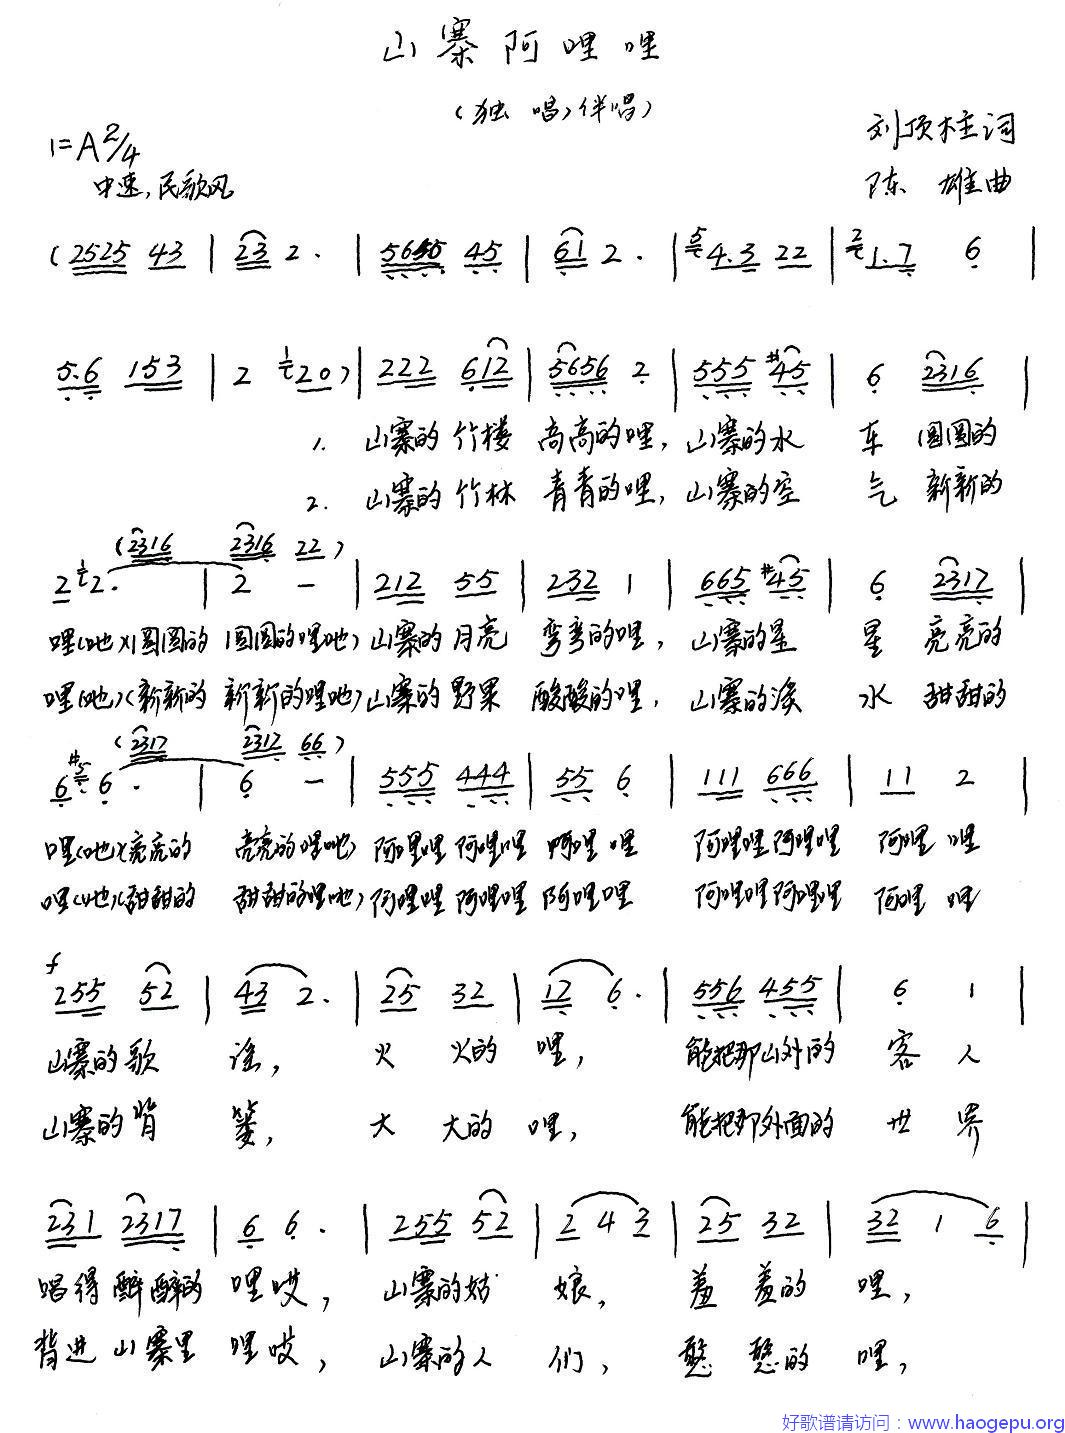 山寨阿哩哩
(独唱、伴唱)
1=A 2/4
刘顶柱词
中速,民歌风
陈雄曲
(2525 43 | 23 2. | 5655 45 | 61 2. | 5 4.3 22 | 2 1.7 6 |
5.6 153 | 2 1 20) | 222 612 | 5656 2 | 555 #45 | 6 2316 |
1. 山寨的竹楼 高高的哩, 山寨的水 车 圆圆的
2. 山寨的竹林 青青的哩, 山寨的空 气 新新的
(2316 2316 22)
2 1 2. | 2 — | 212 55 | 232 1 | 665 #45 | 6 2317 |
哩(吔)(圆圆的 圆圆的哩吔) 山寨的月亮 弯弯的哩, 山寨的星 星 亮亮的
哩(吔)(新新的 新新的哩吔) 山寨的野果 酸酸的哩, 山寨的溪 水 甜甜的
(2317 2312 66)
6 #5 6. | 6 — | 555 444 | 55 6 | 111 666 | 11 2 |
哩(吔)(亮亮的 亮亮的哩吔) 阿哩哩阿哩哩 阿哩哩 阿哩哩阿哩哩 阿哩哩
哩(吔)(甜甜的 甜甜的哩吔) 阿哩哩阿哩哩 阿哩哩 阿哩哩阿哩哩 阿哩哩
f
255 52 | 43 2. | 25 32 | 12 6. | 556 455 | 6 1 |
山寨的歌 谣, 火 火的 哩, 能把那山外的 客 人
山寨的背 篓, 大 大的 哩, 能把那外面的 世 界
231 2317 | 6 6. | 255 52 | 2 4 3 | 25 32 | 32 1 6 |
唱得醉醉的 哩哎, 山寨的姑 娘, 羞 羞的 哩,
背进山寨里 哩哎, 山寨的人 们, 憨 憨的 哩,
好歌谱请访问:www.haogepu.org